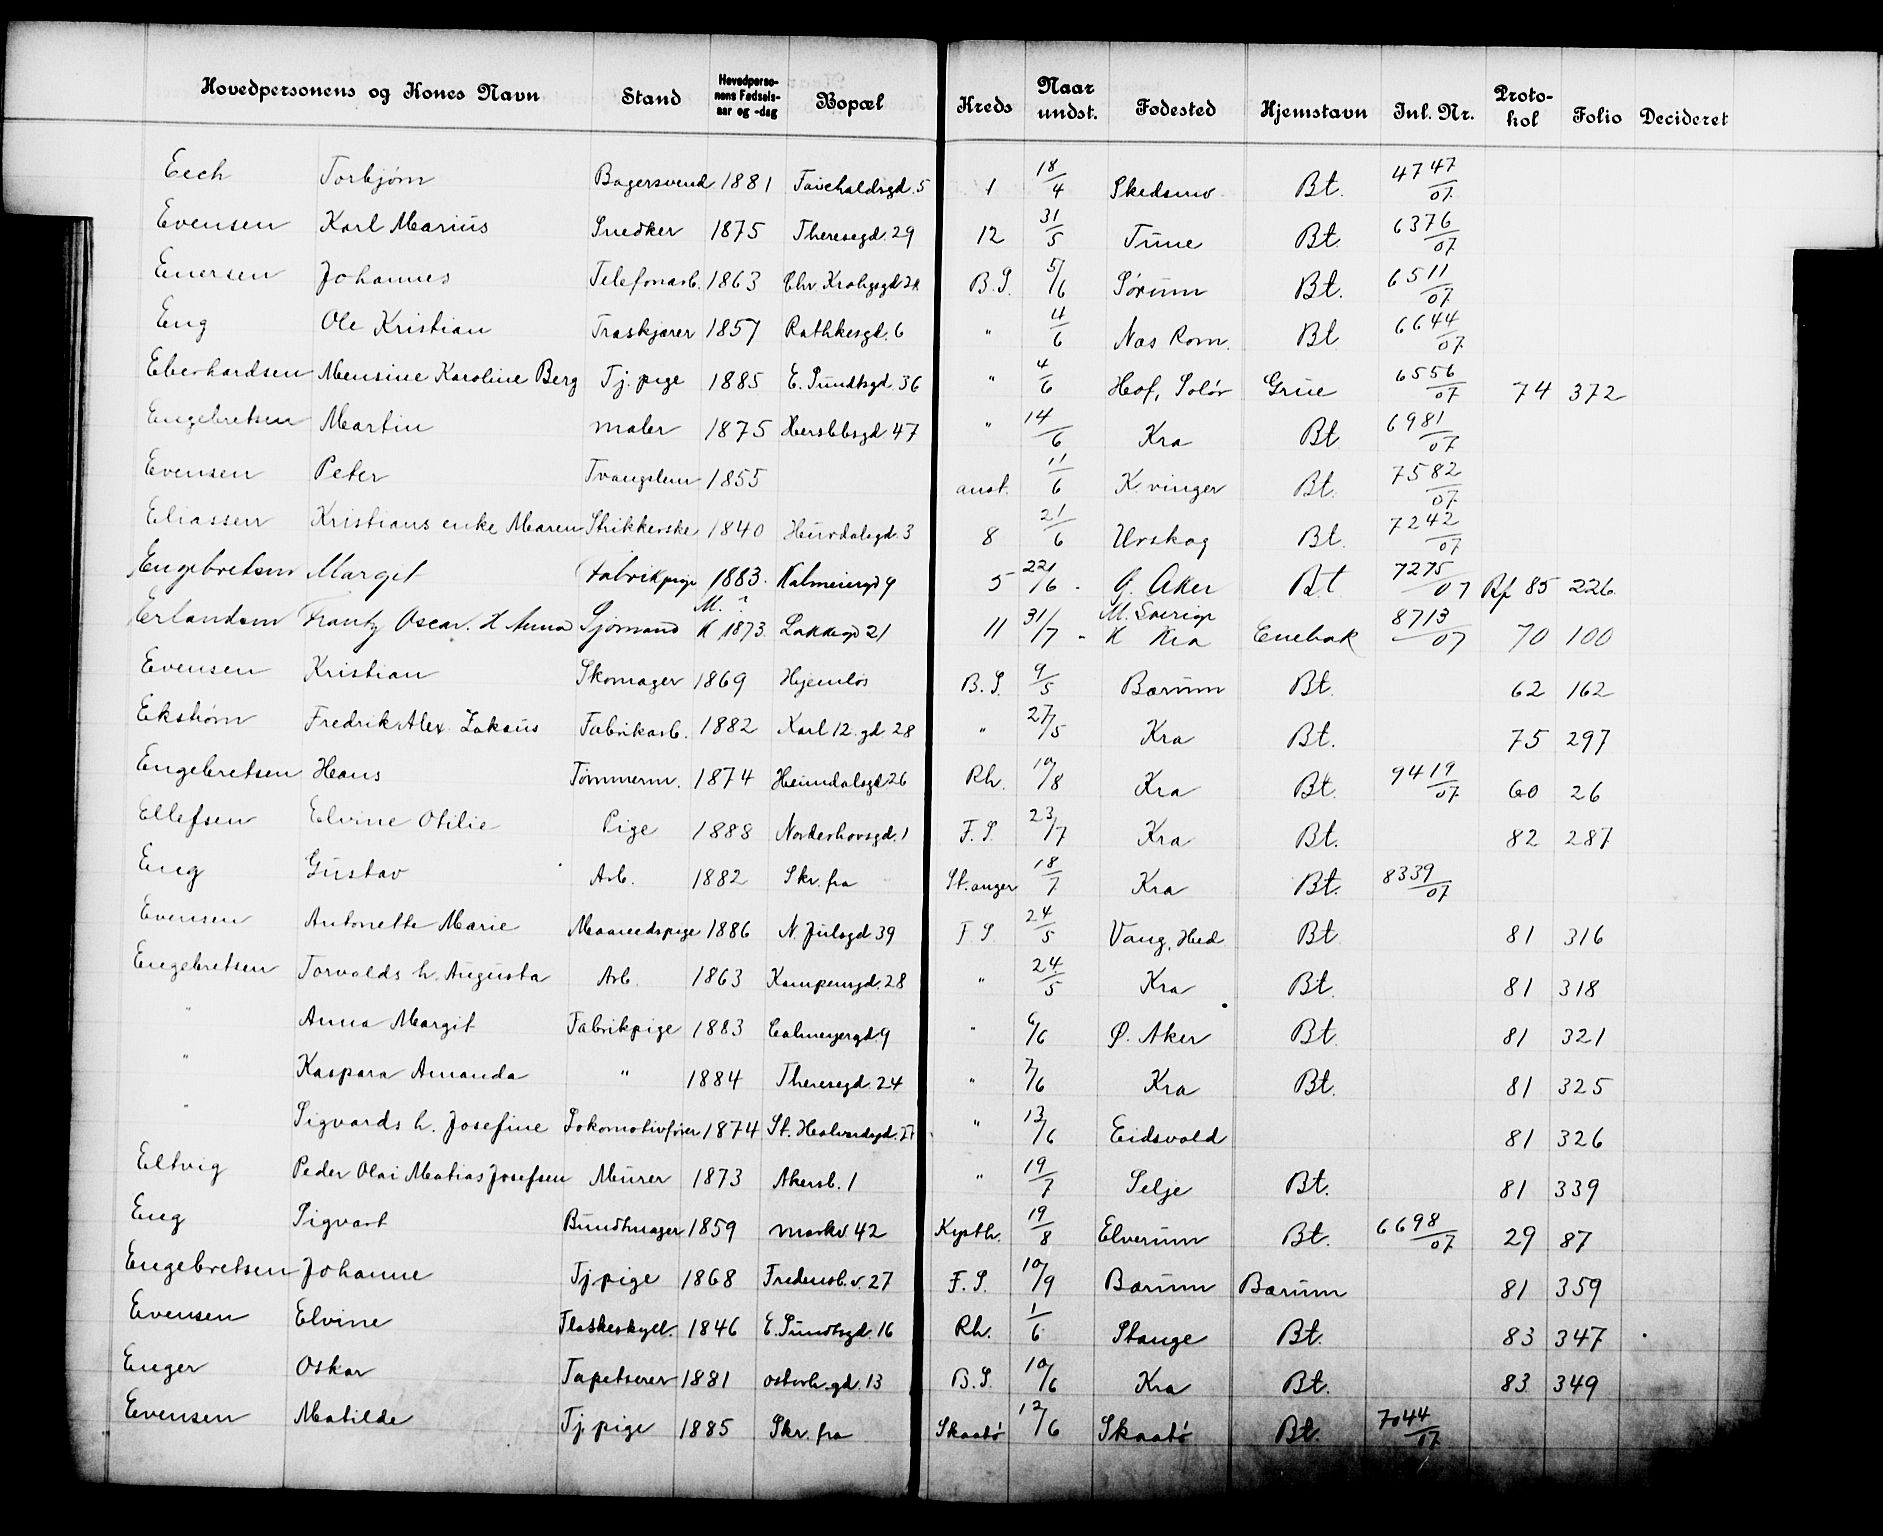 Hovedpersonens og Kones Navn Stand Hovedpersonens Fødsels-aar og -dag Bopæl Kreds Naar undst. Fødested Hjemstavn Inl. Nr. Protokol Folio Decideret
Eech Torbjørn Bagersvend 1881 5 1 18/4 Skedsmo Bt. 4747/07
Evensen Karl Marius Snedker 1875 Theresegd. 29 12 31/5 Tune Bt. 6376/07
Enersen Johannes Telefonarb. 1863 Chr. Krohgsgd B.S. 5/6 Sørum Bt. 6511/07
Eng Ole Kristian Træskjærer 1857 Rathkesgd. 6 " 4/6 Næs Rom. Bt 6644/07
Eberhardsen Mensine Karoline Berg Tj. pige 1885 E. Sundtsgd. 36 " 4/6 Hof, Solør Grue 6556/07 74 372
Engebretsen Martin maler 1875 Herslebsgd 47 " 14/6 Kra Bt. 6981/07
Evensen Peter Tvangslem 1855 anst. 11/6 K.vinger Bt. 7582/07
Eliassen Kristians enke Maren Strikkerske 1840 Hurdalsgd. 3 8 21/6 Urskog Bt. 7242/07
Engebretsen Margit Fabrikpige 1883. Kalmeiergd 9 5 22/6 - Ø. Aker Bt 7275/07 Rf 85 226
Erlandsen Frantz Oscar. K Anna Sjømand M. ? K 1873. Lakkegd 21 11 31/7 - M. Sverige K Kra Enebak 8713/07 70 100
Evensen Kristian Skomager 1869 Hjemløs B.S. 9/5 Bærum Bt. 62 162
Ekstrøm Fredrik Alex. Zakæus Fabrikarb. 1882 Karl 12. gd 28 " 27/5 Kra Bt. 75 297
Engebretsen Hans Tømmerm. 1874 Heimdalsgd 26 Rh. 10/8 Kra Bt. 9419/07 60 26
Ellefsen Elvine Otilie Pige 1888 Norderhovsgd. 1 F.S. 23/7 Kra Bt. 82 287
Eng Gustav Arb. 1882 Skr. fra St.anger 18/7 Kra Bt. 8339/07
Evensen Antonette Marie Maanedspige 1886 N. Julsgd 39 F.S. 24/5 Vang, Hed Bt 81 316
Engebretsen Torvalds h. Augusta Arb. 1863 Kampensgd. 28 " 24/5 Kra Bt. 81 318
" Anna Margit Fabrikpige 1883 Calmeyergd. 9 " 6/6 Ø. Aker Bt 81 321
" Kaspara Amanda " 1884 Theresegd. 24 " 7/6 Kra Bt. 81 325
" Sigvards h. Josefine Lokomotivfører 1874 St. Halvardsgd. " 13/6 Eidsvold 81 326
Eltvig Peder Olai Matias Josefsen Murer 1873 Akersb. 1 " 19/7 Selje Bt. 81 339
Eng Sigvart Bundtmager 1859 markv 42 Kysth. 19/8 Elverum Bt. 6698/07 29 87
Engebretsen Johanne Tj.pige 1868 Fredensb.v. 27 F.S. 10/9 Bærum Bærum 81 359
Evensen Elvine Flaskeskyll. 1846 E. Sundtsgd. 16 Rh. 1/6 Stange Bt. 83 347
Enger Oskar Tapetserer 1881 osterh. gd. 13 B.S. 10/6 Kra Bt. 83 349
Evensen Matilde Tj. pige 1885 Skr. fra Skaatø 12/6 Skaatø Bt. 7044/07